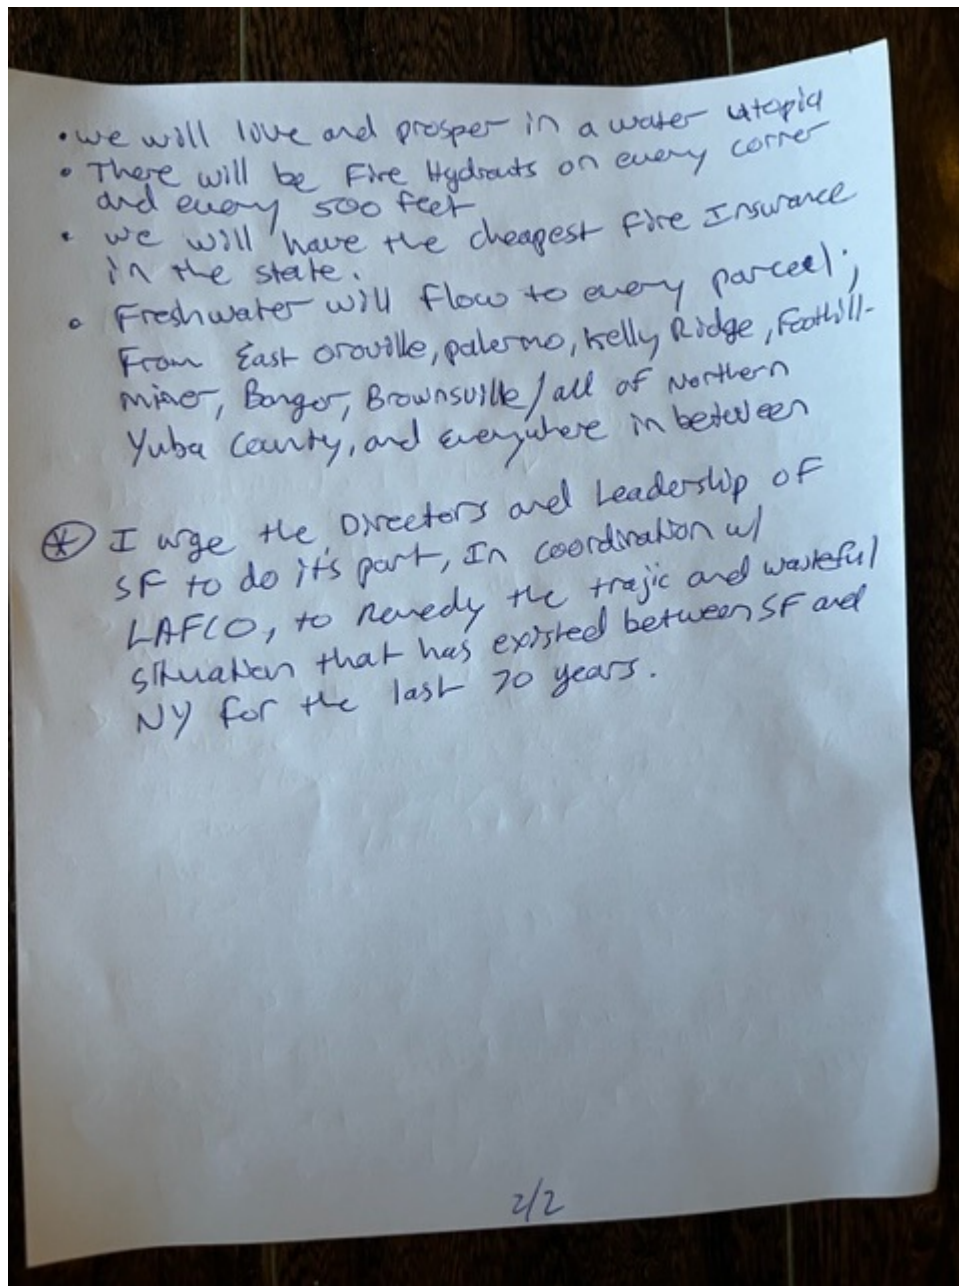 • we will love and prosper in a water utopia
• There will be Fire Hydrants on every corner
and every 500 feet
• we will have the cheapest Fire Insurance
in the state.
• Freshwater will flow to every parcel;
From East Oroville, palermo, Kelly Ridge, Foothill-
miner, Bangor, Brownsville/all of Northern
Yuba County, and Everywhere in between
⊛ I urge the Directors and Leadership of
SF to do it's part, In coordination w/
LAFCO, to Remedy the trajic and wasteful
situation that has existed between SF and
NY for the last 70 years.
2/2